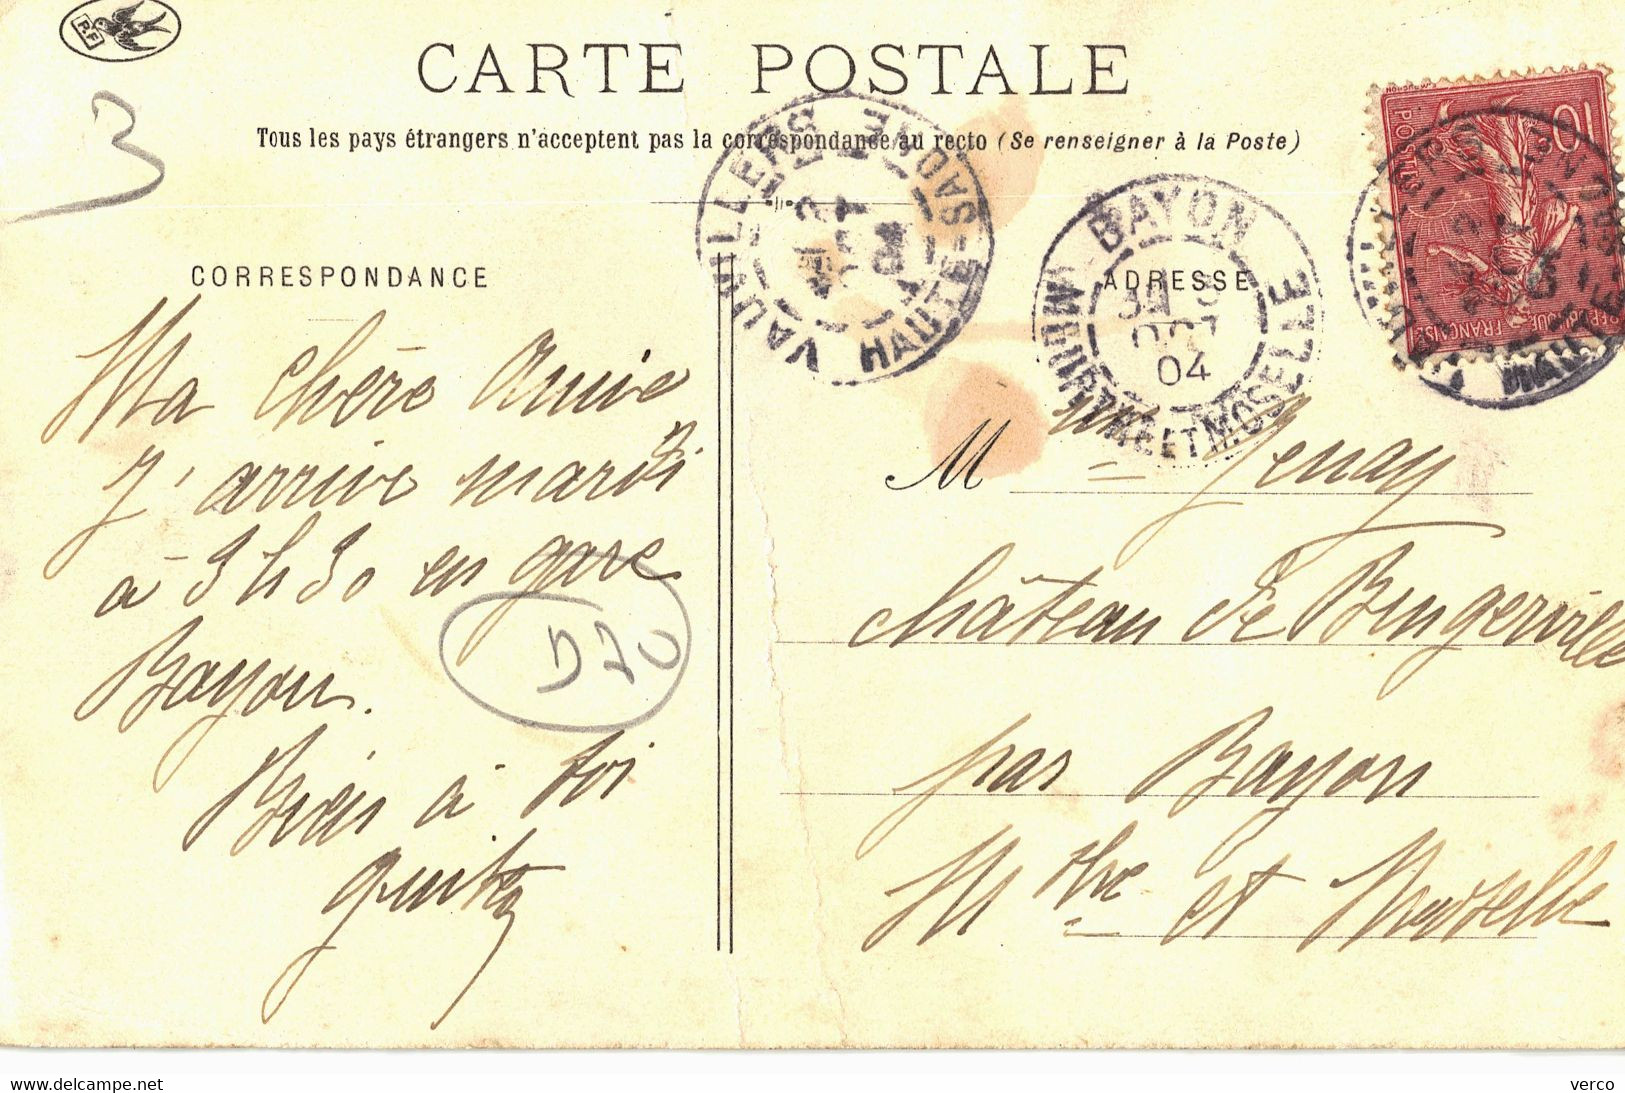 P.F
CARTE POSTALE
3
Tous les pays étrangers n'acceptent pas la correspondance au recto (Se renseigner à la Poste)
VAUVILLERS
HAUTE-SAONE
04
BAYON
OCT
04
MEURTHE ET MOSELLE
10
POSTES
REPUBLIQUE FRANCAISE
CORRESPONDANCE
Ma chère Amie
J'arrive mardi
à 3h30 en gare
Bayon.
Bien à toi
D70
ADRESSE
M me Jenay
château de Bingerville
par Bayon
Mthe et Moselle
verco